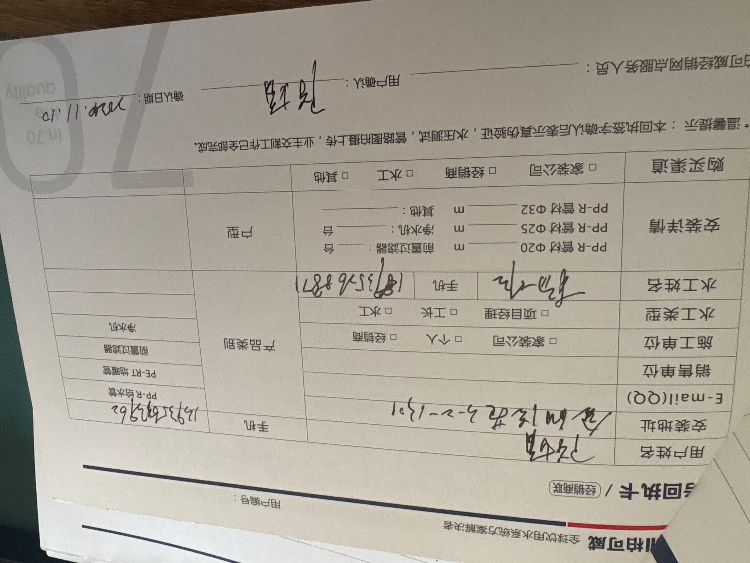 柏可威 全球饮用水系统方案解决者
回执卡 / 经销商联 用户编号：
用户姓名
安装地址 3-2-1301 手机
E-mail(QQ) PP-R 给水管
销售单位 PE-RT 地暖管
施工单位 □ 家装公司 □ 个人 □ 经销商 产品类别 前置过滤器
水工类型 □ 项目经理 □ 工长 □ 水工 净水机
水工姓名 手机
安装详情 PP-R 管材 Φ20 m 前置过滤器： 台 户型
PP-R 管材 Φ25 m 净水机： 台
PP-R 管材 Φ32 m 其他：
购买渠道 □ 家装公司 □ 经销商 □ 水工 □ 其他
*温馨提示：本回执签字确认后表示真伪验证，水压测试，管路图拍摄上传，业主交割工作已全部完成。
柏可威经销网点服务人员： 用户确认： 确认日期：2024.11.10
In 70
quality
70